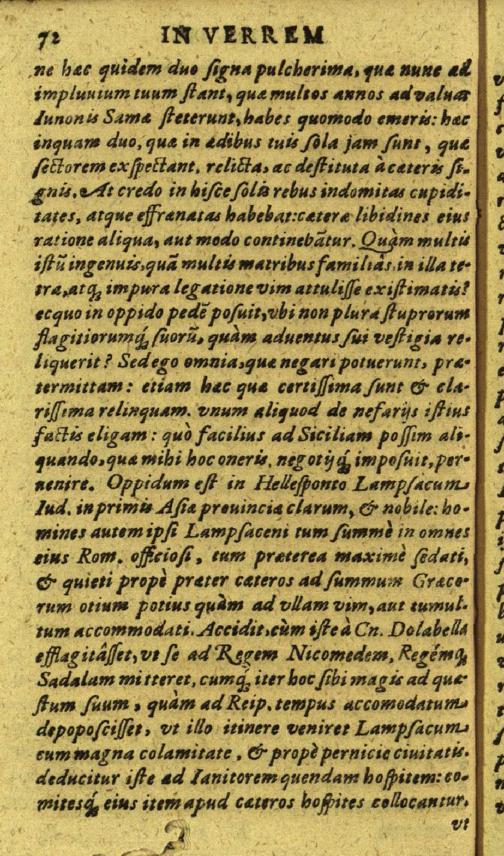 72 IN VERREM
ne hæc quidem duo signa pulcherima, quæ nunc ad
impluuium tuum stant, quæ multos annos ad valuas
Iunonis Samæ steterunt, habes quomodo emeris: hæc
inquam duo, quæ in ædibus tuis sola jam sunt, quæ
sectorem exspectant, relicta, ac destituta à cæteris si-
gnis. At credo in hisce solis rebus indomitas cupidi-
tates, atque effrenatas habebat: cæteræ libidines eius
ratione aliqua, aut modo continebãtur. Quàm multis
istũ ingenuis, quã multis matribus familiâs in illa te-
tra, atq; impura legatione vim attulisse existimatis?
ecquo in oppido pedẽ posuit, vbi non plura stuprorum
flagitiorumq́; suorũ, quàm aduentus sui vestigia re-
liquerit? Sed ego omnia, quæ negari potuerunt, præ-
termittam: etiam hæc quæ certissima sunt & cla-
rissima relinquam. vnum aliquod de nefarijs istius
factis eligam: quò facilius ad Siciliam possim ali-
quando, quæ mihi hoc oneris, negotijq́; imposuit, per-
uenire. Oppidum est in Hellesponto Lampsacum
Iud. in primis Asiæ prouinciæ clarum, & nobile: ho-
mines autem ipsi Lampsaceni tum summè in omnes
eius Rom. officiosi, tum præterea maximè sedati,
& quieti propè præter cæteros ad summum Græco-
rum otium potius quàm ad vllam vim, aut tumul-
tum accommodati. Accidit, cùm iste à Cn. Dolabella
efflagitâsset, vt se ad Regem Nicomedem, Regémq;
Sadalam mitteret, cumq́; iter hoc sibi magis ad quæ-
stum suum, quàm ad Reip. tempus accomodatum
depoposcisset, vt illo itinere veniret Lampsacum
cum magna colamitate, & propè pernicie ciuitatis.
deducitur iste ad Ianitorem quendam hospitem: co-
mitesq́; eius item apud cæteros hospites collocantur.
vt